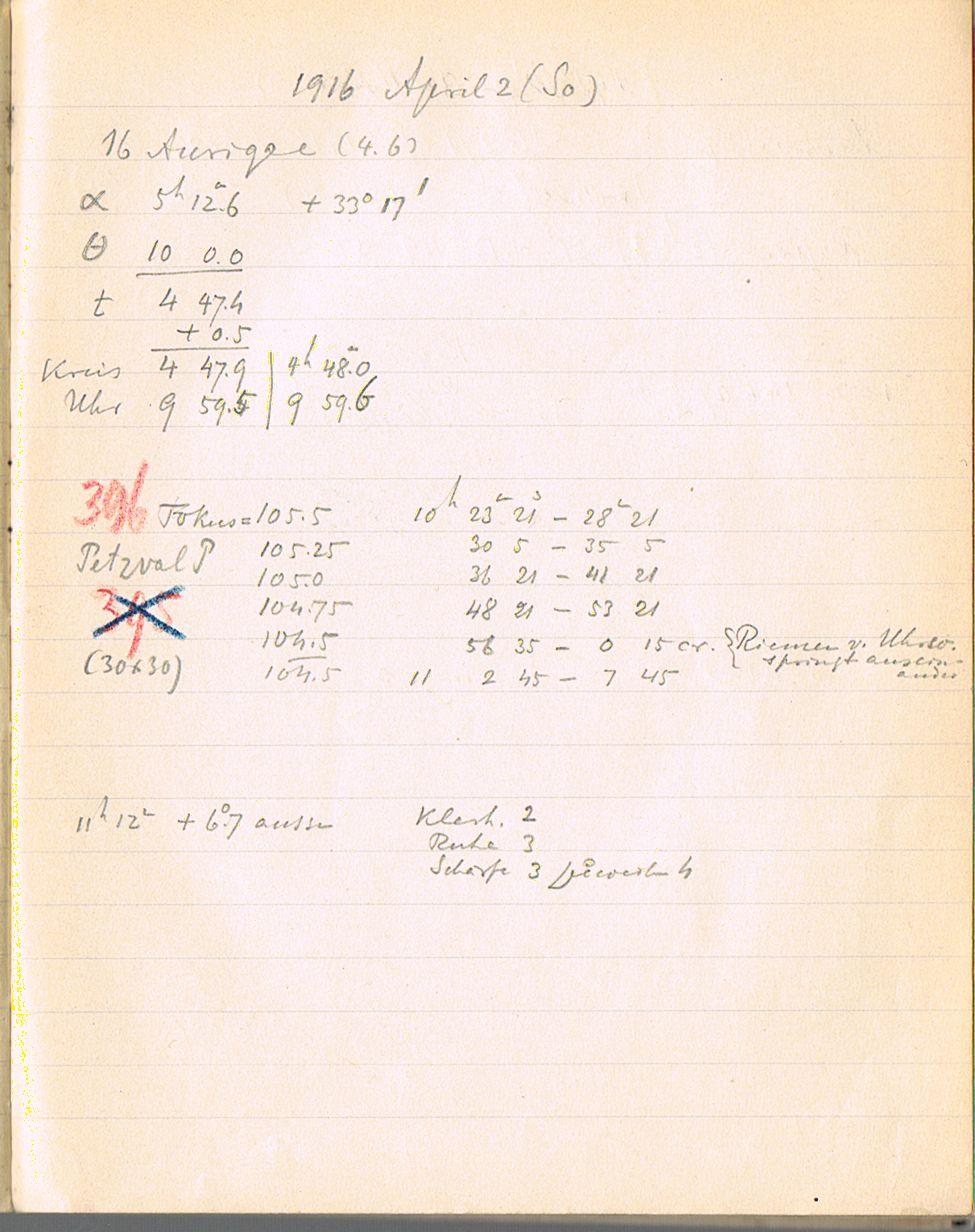 1916 April 2 (So)
16 Aurigae (4.6)
α 5ʰ 12ᵐ.6 + 33° 17'
θ 10 0.0
t 4 47.4
+ 0.5
Kreis 4 47.9 | 4ʰ 48ᵐ.0
Uhr 9 59.5 | 9 59.6
396 Fokus = 105.5 10ʰ 23ᵐ 21ˢ – 28ᵐ 21
Petzval P 105.25 30 5 – 35 5
105.0 36 21 – 41 21
395 104.75 48 21 – 53 21
104.5 56 35 – 0 15 cr. { Riemen v. Uhrw.
(30x30) springt ausein-
ander
104.5 11 2 45 – 7 45
11ʰ 12ᵐ + 6°.7 aussen Klarh. 2
Ruhe 3
Schärfe 3 zuweilen 4